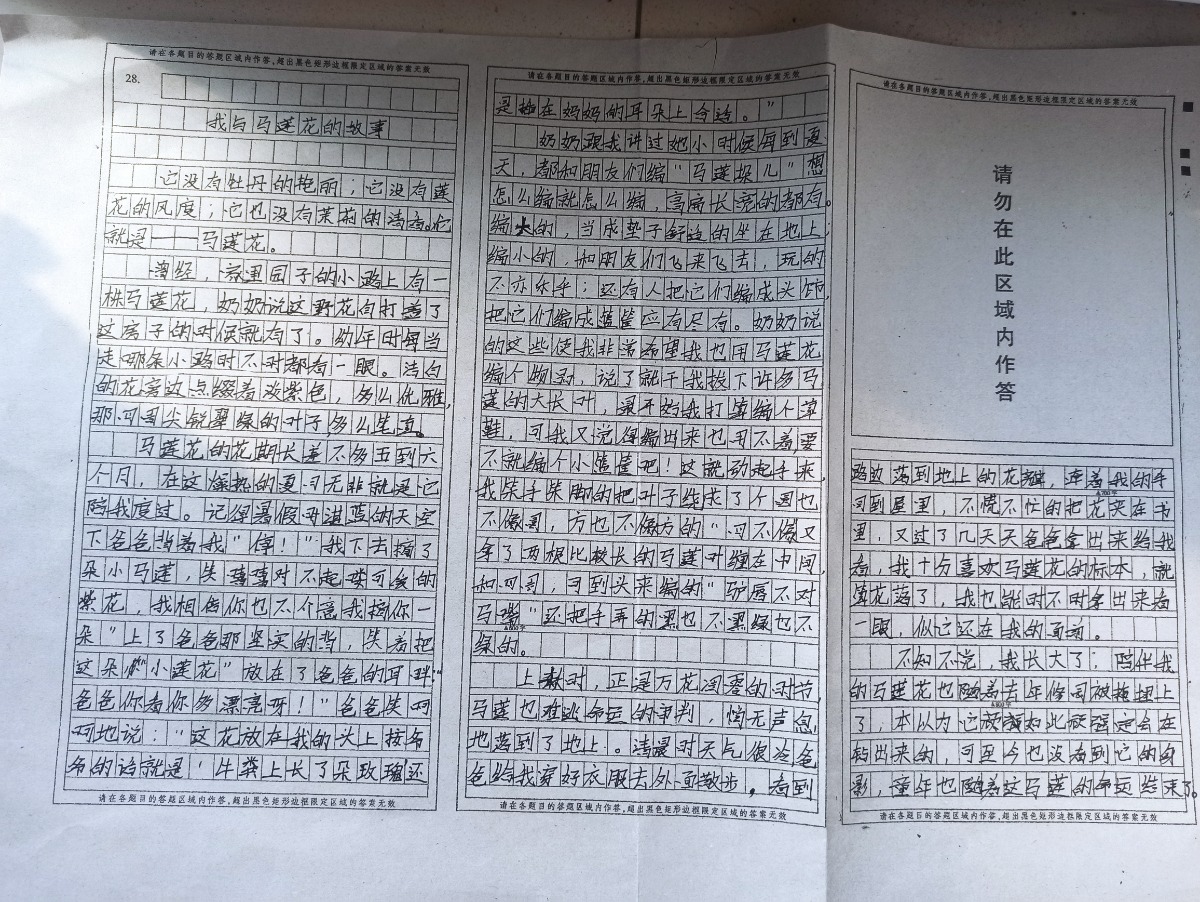 请在各题目的答题区域内作答,超出黑色矩形边框限定区域的答案无效
28.
我与马莲花的故事
它没有牡丹的艳丽；它没有莲
花的风度；它也没有茉莉的清香。它
就是——马莲花。
曾经，家里园子的小路上有一
株马莲花，奶奶说这野花自打盖了
这房子的时候就有了。幼年时每当
走哪条小路时不时都看一眼。洁白
的花旁边点缀着淡紫色，多么优雅，
那可周尖锐翠绿的叶子多么笔直。
马莲花的花期长差不多五到六
个月，在这燥热的夏可无非就是它
陪我度过。记得暑假可湛蓝的天空
下爸爸背着我"停！"我下去摘了
朵小马莲，笑对不起喽可爱的
紫花，我相信你也不介意我摘你一
朵"上了爸爸那坚实的背，笑着把
这朵小"小莲花"放在了爸爸的耳畔"
爸爸你看你多漂亮呀！"爸爸笑呵
呵地说："这花放在我的头上按爷
爷的话就是'牛粪上长了朵玫瑰还
请在各题目的答题区域内作答,超出黑色矩形边框限定区域的答案无效
请在各题目的答题区域内作答,超出黑色矩形边框限定区域的答案无效
是插在妈妈的耳朵上合适。"
奶奶跟我讲过她小时候每到夏
天，都和朋友们编"马莲垛儿"想
怎么编就怎么编，高扁长宽的都有。
编大的，当成垫子舒适的坐在地上，
编小的，和朋友们飞来飞去，玩的
不亦乐乎；还有人把它们编成头饰，
把它们编成篮筐应有尽有。奶奶说
的这些使我非常希望我也用马莲花
编个物品，说了就干我拔下许多马
莲的大长叶，最开始我打算编个草
鞋，可我又觉得编出来也用不着，要
不就编个小篮筐吧！这就动起手来，
我笨手笨脚的把叶子绕成了个圆也
不像圆，方也不像方的"可不像又
拿了两根比较长的马莲叶缠在中间，
和可周，可到头来编的"驴唇不对
马嘴"还把手弄的黑也不黑绿也不
绿的。
上秋时，正是万花凋零的时节，
马莲也难逃命运的审判，悄无声息
地落到了地上。清晨时天气很冷爸
爸给我穿好衣服去外面散步，看到
请在各题目的答题区域内作答,超出黑色矩形边框限定区域的答案无效
请在各题目的答题区域内作答,超出黑色矩形边框限定区域的答案无效
请勿在此区域内作答
路边落到地上的花瓣，牵着我的手
回到屋里，不慌不忙的把花夹在书
里，又过了几天天爸爸拿出来给我
看，我十分喜欢马莲花的标本，就
算花落了，我也能时不时拿出来看
一眼，似它还在我的面前。
不知不觉，我长大了；陪伴我
的马莲花也随着去年修园被掩埋上
了，本以为它如此顽强定会在
钻出来的，可至今也没看到它的身
影，童年也随着这马莲的命运结束了。
请在各题目的答题区域内作答,超出黑色矩形边框限定区域的答案无效